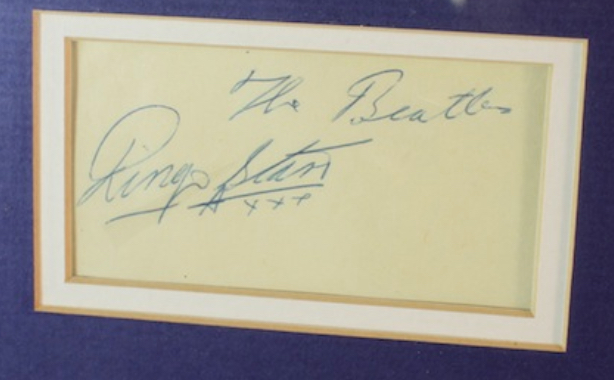 The Beatles
Ringo Starr
xxx